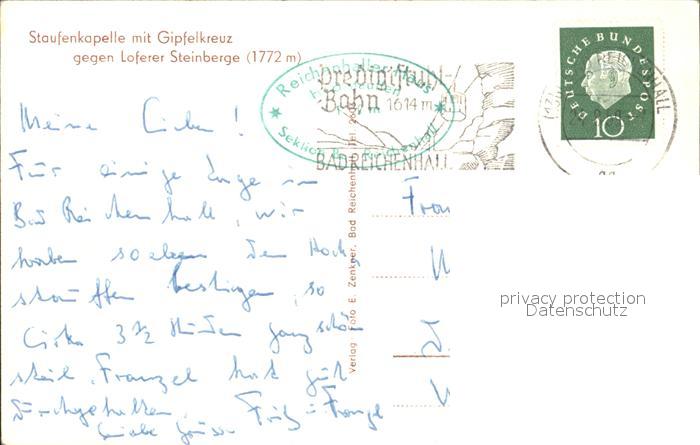 Staufenkapelle mit Gipfelkreuz
gegen Loferer Steinberge (1772 m)
Reichenhaller Haus
Sektion Bad Reichenhall
Predigtstuhl-
Bahn 1614 m
BAD REICHENHALL
DEUTSCHE BUNDESPOST
10
REICHENHALL
Meine Lieben!
Für einige Tage in
Bad Reichenhall, wir
haben soeben den Hoch
stauffen bestiegen, so
Cirka 3 1/2 Stunden ganz schön
steil. Franzel hat gut
durchgehalten.
Liebe Grüsse Fritz u. Franzl
Verlag Foto E. Zenkner, Bad Reichenhall, Tel.
Frau
privacy protection
Datenschutz